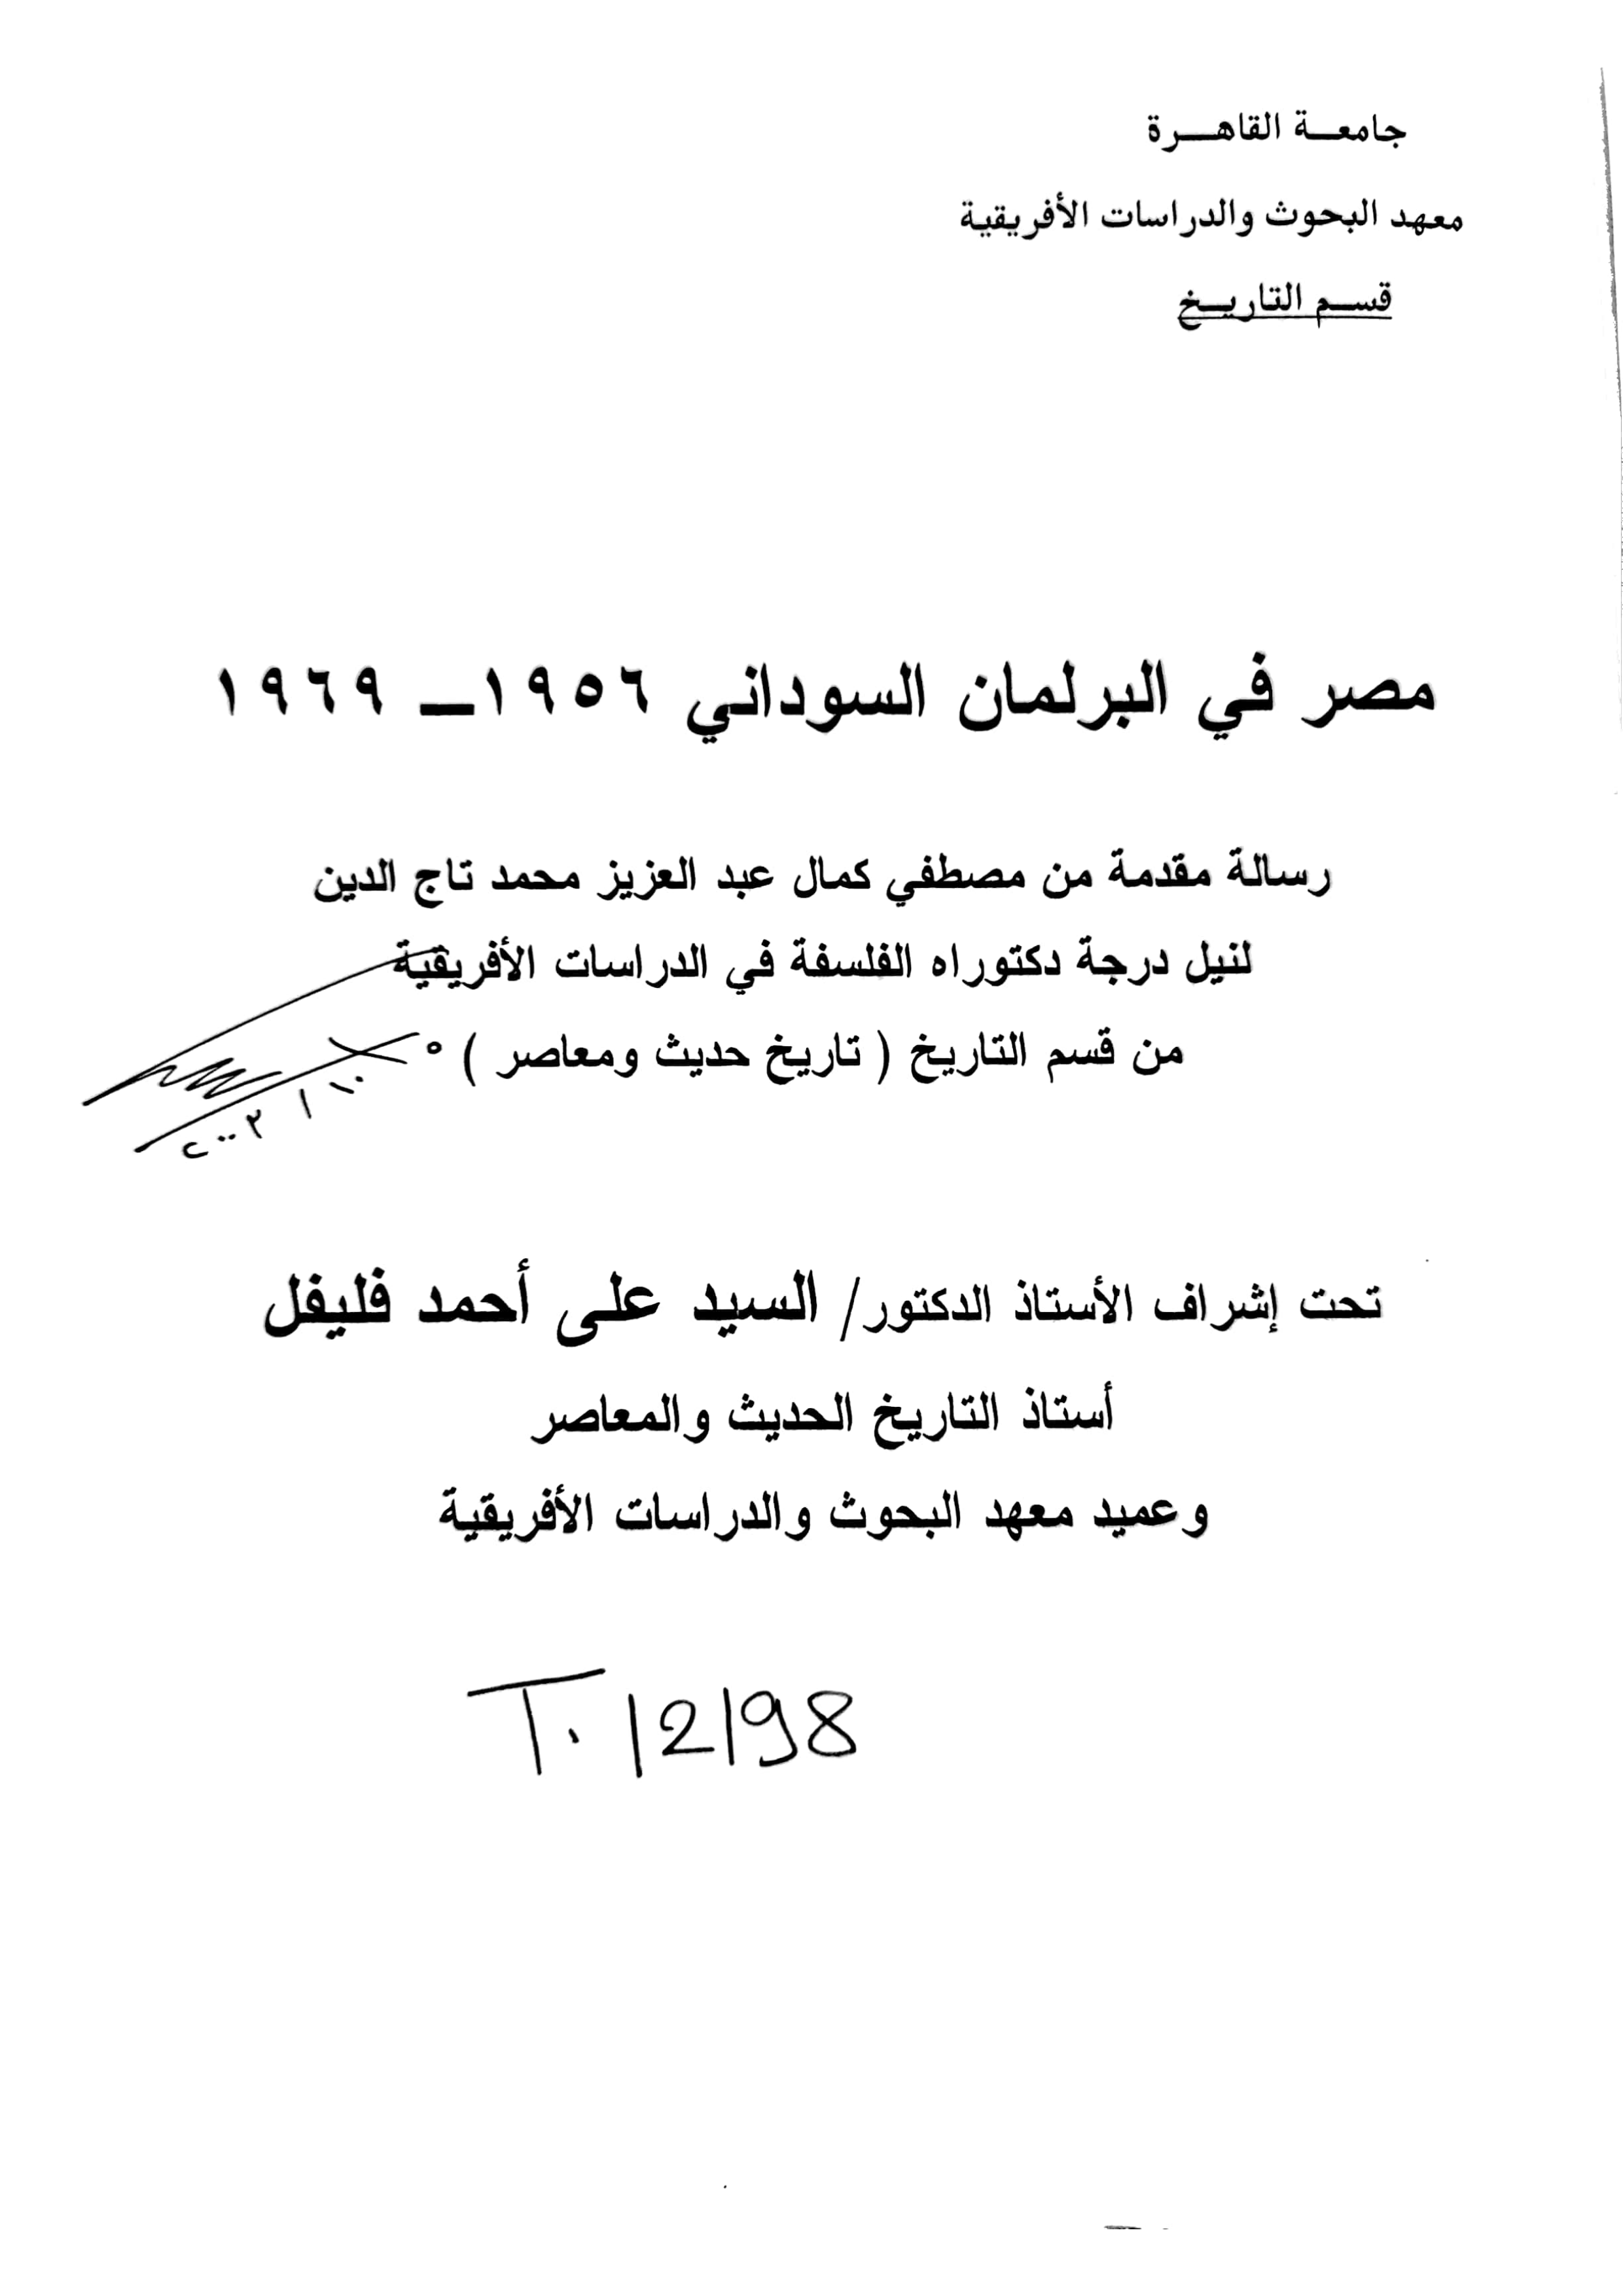 جامعة القاهرة
معهد البحوث والدراسات الأفريقية
قسم التاريخ
مصر في البرلمان السوداني ١٩٥٦ــ ١٩٦٩
رسالة مقدمة من مصطفي كمال عبد العزيز محمد تاج الدين
لنيل درجة دكتوراه الفلسفة في الدراسات الأفريقية
من قسم التاريخ ( تاريخ حديث ومعاصر )
تحت إشراف الأستاذ الدكتور/ السيد على أحمد فليفل
أستاذ التاريخ الحديث والمعاصر
وعميد معهد البحوث والدراسات الأفريقية